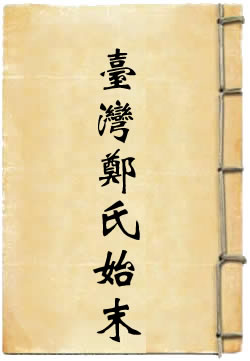 臺灣鄭氏始末